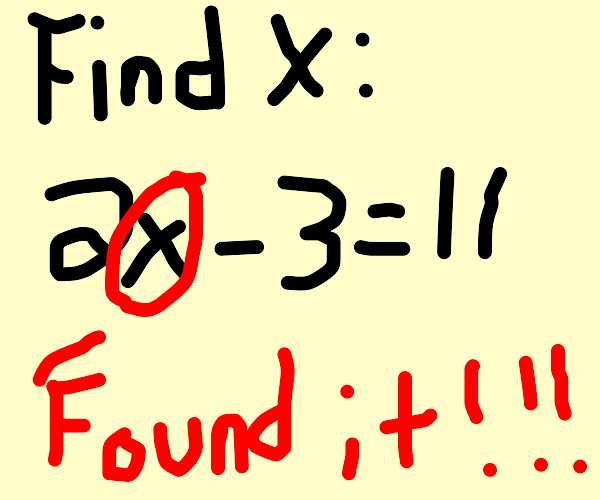 Find X:
2x-3=11
Found it!!!